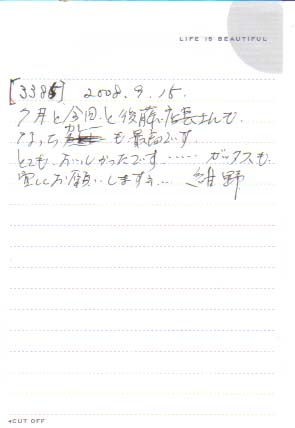 LIFE IS BEAUTIFUL
[3385] 2008.9.15.
7月と今回と後藤店長さんも
なっちカレーも最高です
とても、おいしかったです…… ガックスも
宜しくお願いしますネ… 紺野
◂CUT OFF